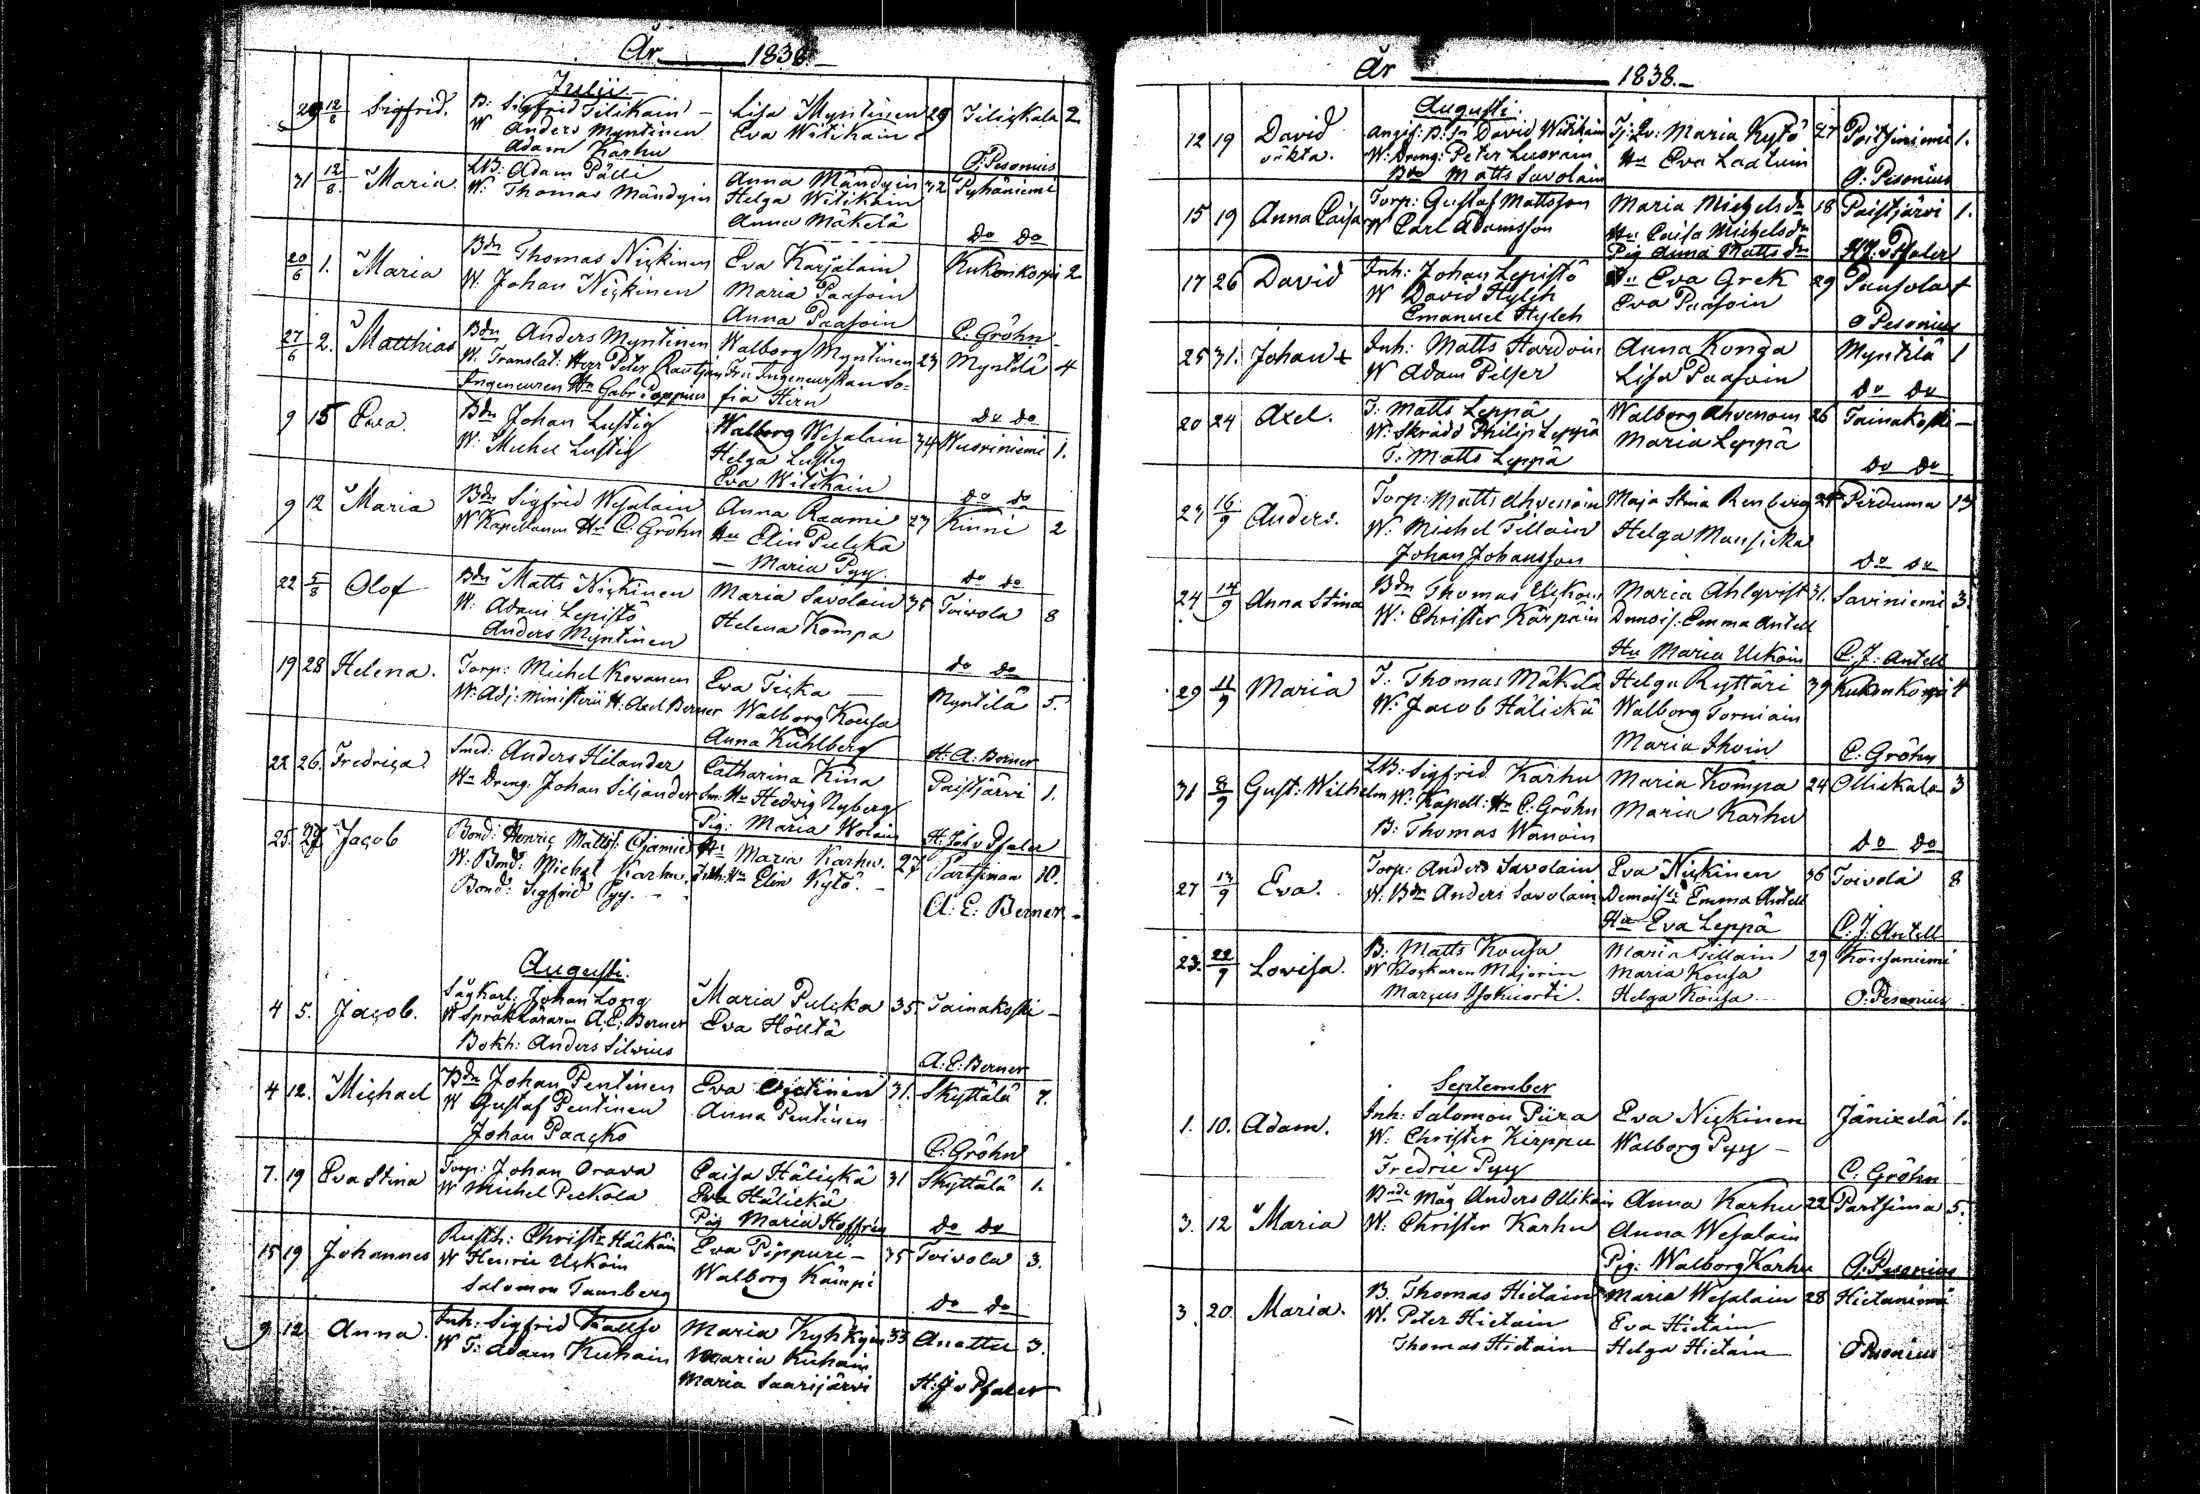 År 1838.
Julii
29 12/8 Sigfrid. B: Sigfrid Tilikain Lisa Myntinen 29 Tiliskala 2
W Anders Myntinen Eva Witikain
Adam Karhu O: Pesonius
31 12/8 Maria. LB: Adam Pälli Anna Mändyin 32 Pyhäniemi
W: Thomas Mändyin Helga Witikain
Anna Mäkelä Do Do
20/6 1. Maria Bdn Thomas Nickinen Eva Karjalain Kukonkorpi 2
W. Johan Nickinen Maria Paasoin
Anna Paasoin C. Gröhn
27/6 2. Matthias Bdn Anders Myntinen Walborg Myntinen 23 Myntilä 4
W. Translat: Herr Peter Fru Ingeneurskan So-
Ingeneuren Hr Gabr Poppius fia Hirn Do Do
9 15 Ewa. Bdn Johan Lustig Walborg Wesalain 34 Wuoriniemi 1.
W. Michel Lustig Helga Lustig
Eva Witikain Do Do
9 12 Maria Bdn Sigfrid Wesalain Anna Raami 27 Kinni 2
W Kapellanen Hr C. Gröhn Hu Elin Pulcka
— Maria Pyy. Do Do
22 5/8 Olof Bdn Matts Nickinen Maria Savolain 35 Toivola 8
W. Adam Lepistö Helena Kompa
Anders Myntinen Do Do
19 28 Helena. Torp: Michel Kovanen Eva Ticka Myntilä 5.
W. Adj: Ministerii H: Axel Berner Walborg Kousa
Anna Kuhlberg H. A: Berner
22 26. Fredrica. Smed: Anders Hilander Catharina Kina Paistjärvi 1.
Wn Dreng. Johan Siljander Sm: Hu Hedvig Nyberg
Pig: Maria
25. 27 Jacob Bond: Henric Matts: Ojamies Hu Maria Karhu. 27 Partsimaa 10.
W. Bond: Michel Karhu. Hu Elin Kytö.
Bond: Sigfrid Pyy. A: E: Berner
Augusti.
4 5. Jacob. Såg Karl: Johan Long Maria Pulcka 35 Tainakoski
W Språkläraren A: E: Berner Eva Höltä
Bokh: Anders Silvius A: E: Berner
4 12. Michael Bdn Johan Pentinen Eva 31. Skyttälä 7.
W Gustaf Pentinen Anna Pentinen
Johan Paacko C. Gröhn
7. 19 Eva Stina Torp: Johan Orava Caisa Hälickä 31 Skyttälä 1.
W Michel Peckola Eva Hälickä
Pig Maria Hoffrén Do Do
15 19 Johannes Rusth: Christr Häckäin Eva Pippuri 35 Toivola 3.
W Henric Uckoin Walborg Kämpi
Salomon Tamberg Do Do
9 12 Anna. Inh: Sigfrid Kallso Maria Kyhkyin 33 Anettu 3.
W T: Adam Kuhain Maria Kuhain
Maria Saarijärvi
År 1838.
Augusti.
12 19 David Angif: B: Sn David Witikain Tj: Qv: Maria Kytö 27 Poitsiniemi 1.
oäkta. W: Dreng: Peter Luorain Hu Eva Laatuin
Matts Savolain O: Pesonius
15 19 Anna Caisa Torp: Gustaf Mattsson Maria Michelsdr 18 Paistjärvi 1.
W Carl Adamsson Hu Caisa Michelsdr
Pig Anna Mattsdr
17 26 David Inh: Johan Lepistö Hu Eva Grek 29 Paasola
W David Hylch Eva Paasoin
Emanuel Hylch O Pesonius
25 31. Johan Inh: Matts Hardoin Anna Konga Myntilä 1
W Adam Pelser Lisa Paasoin Do Do
20 24 Axel. T: Matts Leppä Walborg Ahvenoin 26 Tainakoski
W. Skrädd Philip Leppä Maria Leppä
T: Matts Leppä Do Do
23 16/9 Anders. Torp: Matts Ahvenain Maja Stina Renberg Perduma 13
W. Michel Tillain Helga Mansicka
Johan Johansson Do Do
24 14/9 Anna Stina Bdn Thomas Uckoin Maria Ahlqvist 31. Saviniemi 3.
W. Christer Kärpäin Demois. Emma Antell
Hu Maria Uckoin C. J: Antell
29 11/9 Maria T: Thomas Mäkelä Helga Ryttäri 39 Kukonkorpi 4
W: Jacob Hälickä Walborg Torniain
Maria Ihoin C. Gröhn
31 8/9 Gust: Wilhelm LB: Sigfrid Karhu Maria Kompa 24 Ollickala 3
W: Kapell: Hr C: Gröhn Maria Karhu
B: Thomas Wänäin Do Do
27 13/9 Eva. Torp: Anders Savolain Eva Nickinen 36 Toivola 8
W. Bdn Anders Savolain Demois: Emma Antell
Hu Eva Leppä C. J. Antell
23. 22/9 Lovisa. B: Matts Kousa Maria Tillain 29 Kousaniemi
W Klockaren Majorin Maria Kousa
Marcus Isokuorti. Helga Kousa O: Pesonius
September
1. 10. Adam. Inh: Salomon Piira Eva Nickinen Jänixelä 1.
W. Christer Kirppu Walborg Pyy
Fredric Pyy C: Gröhn
3. 12 Maria Måg Anders Ollikain Anna Karhu 22 Partsima 5.
W. Christer Karhu Anna Wesalain
Pig: Walborg Karhu O: Pesonius
3. 20. Maria. B. Thomas Hietain Maria Wesalain 28 Hietaniemi
W. Peter Hietain Eva Hietain
Thomas Hietain Helga Hietain O Pesonius